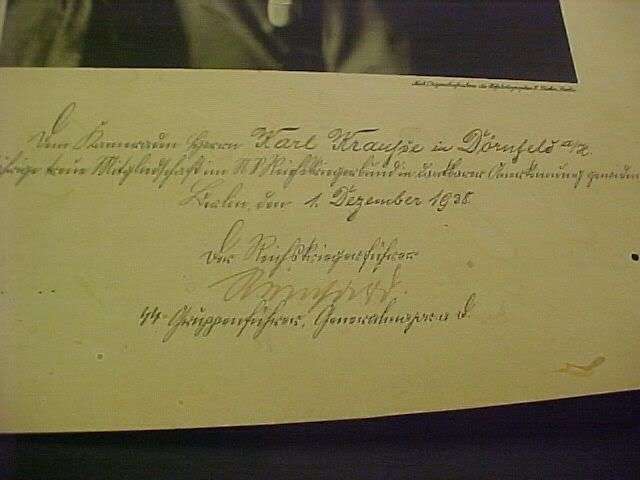 Nach Originalaufnahme des Hofphotographen
Dem Kameraden Herrn Karl Krauße in Dörnfeld a/H.
jährige treue Mitgliedschaft im NS Reichskriegerbund in dankbarer Anerkennung gewidmet
Berlin, den 1. Dezember 1938
Der Reichskriegerführer
Reinhard.
SS-Gruppenführer, Generalmajor a. D.